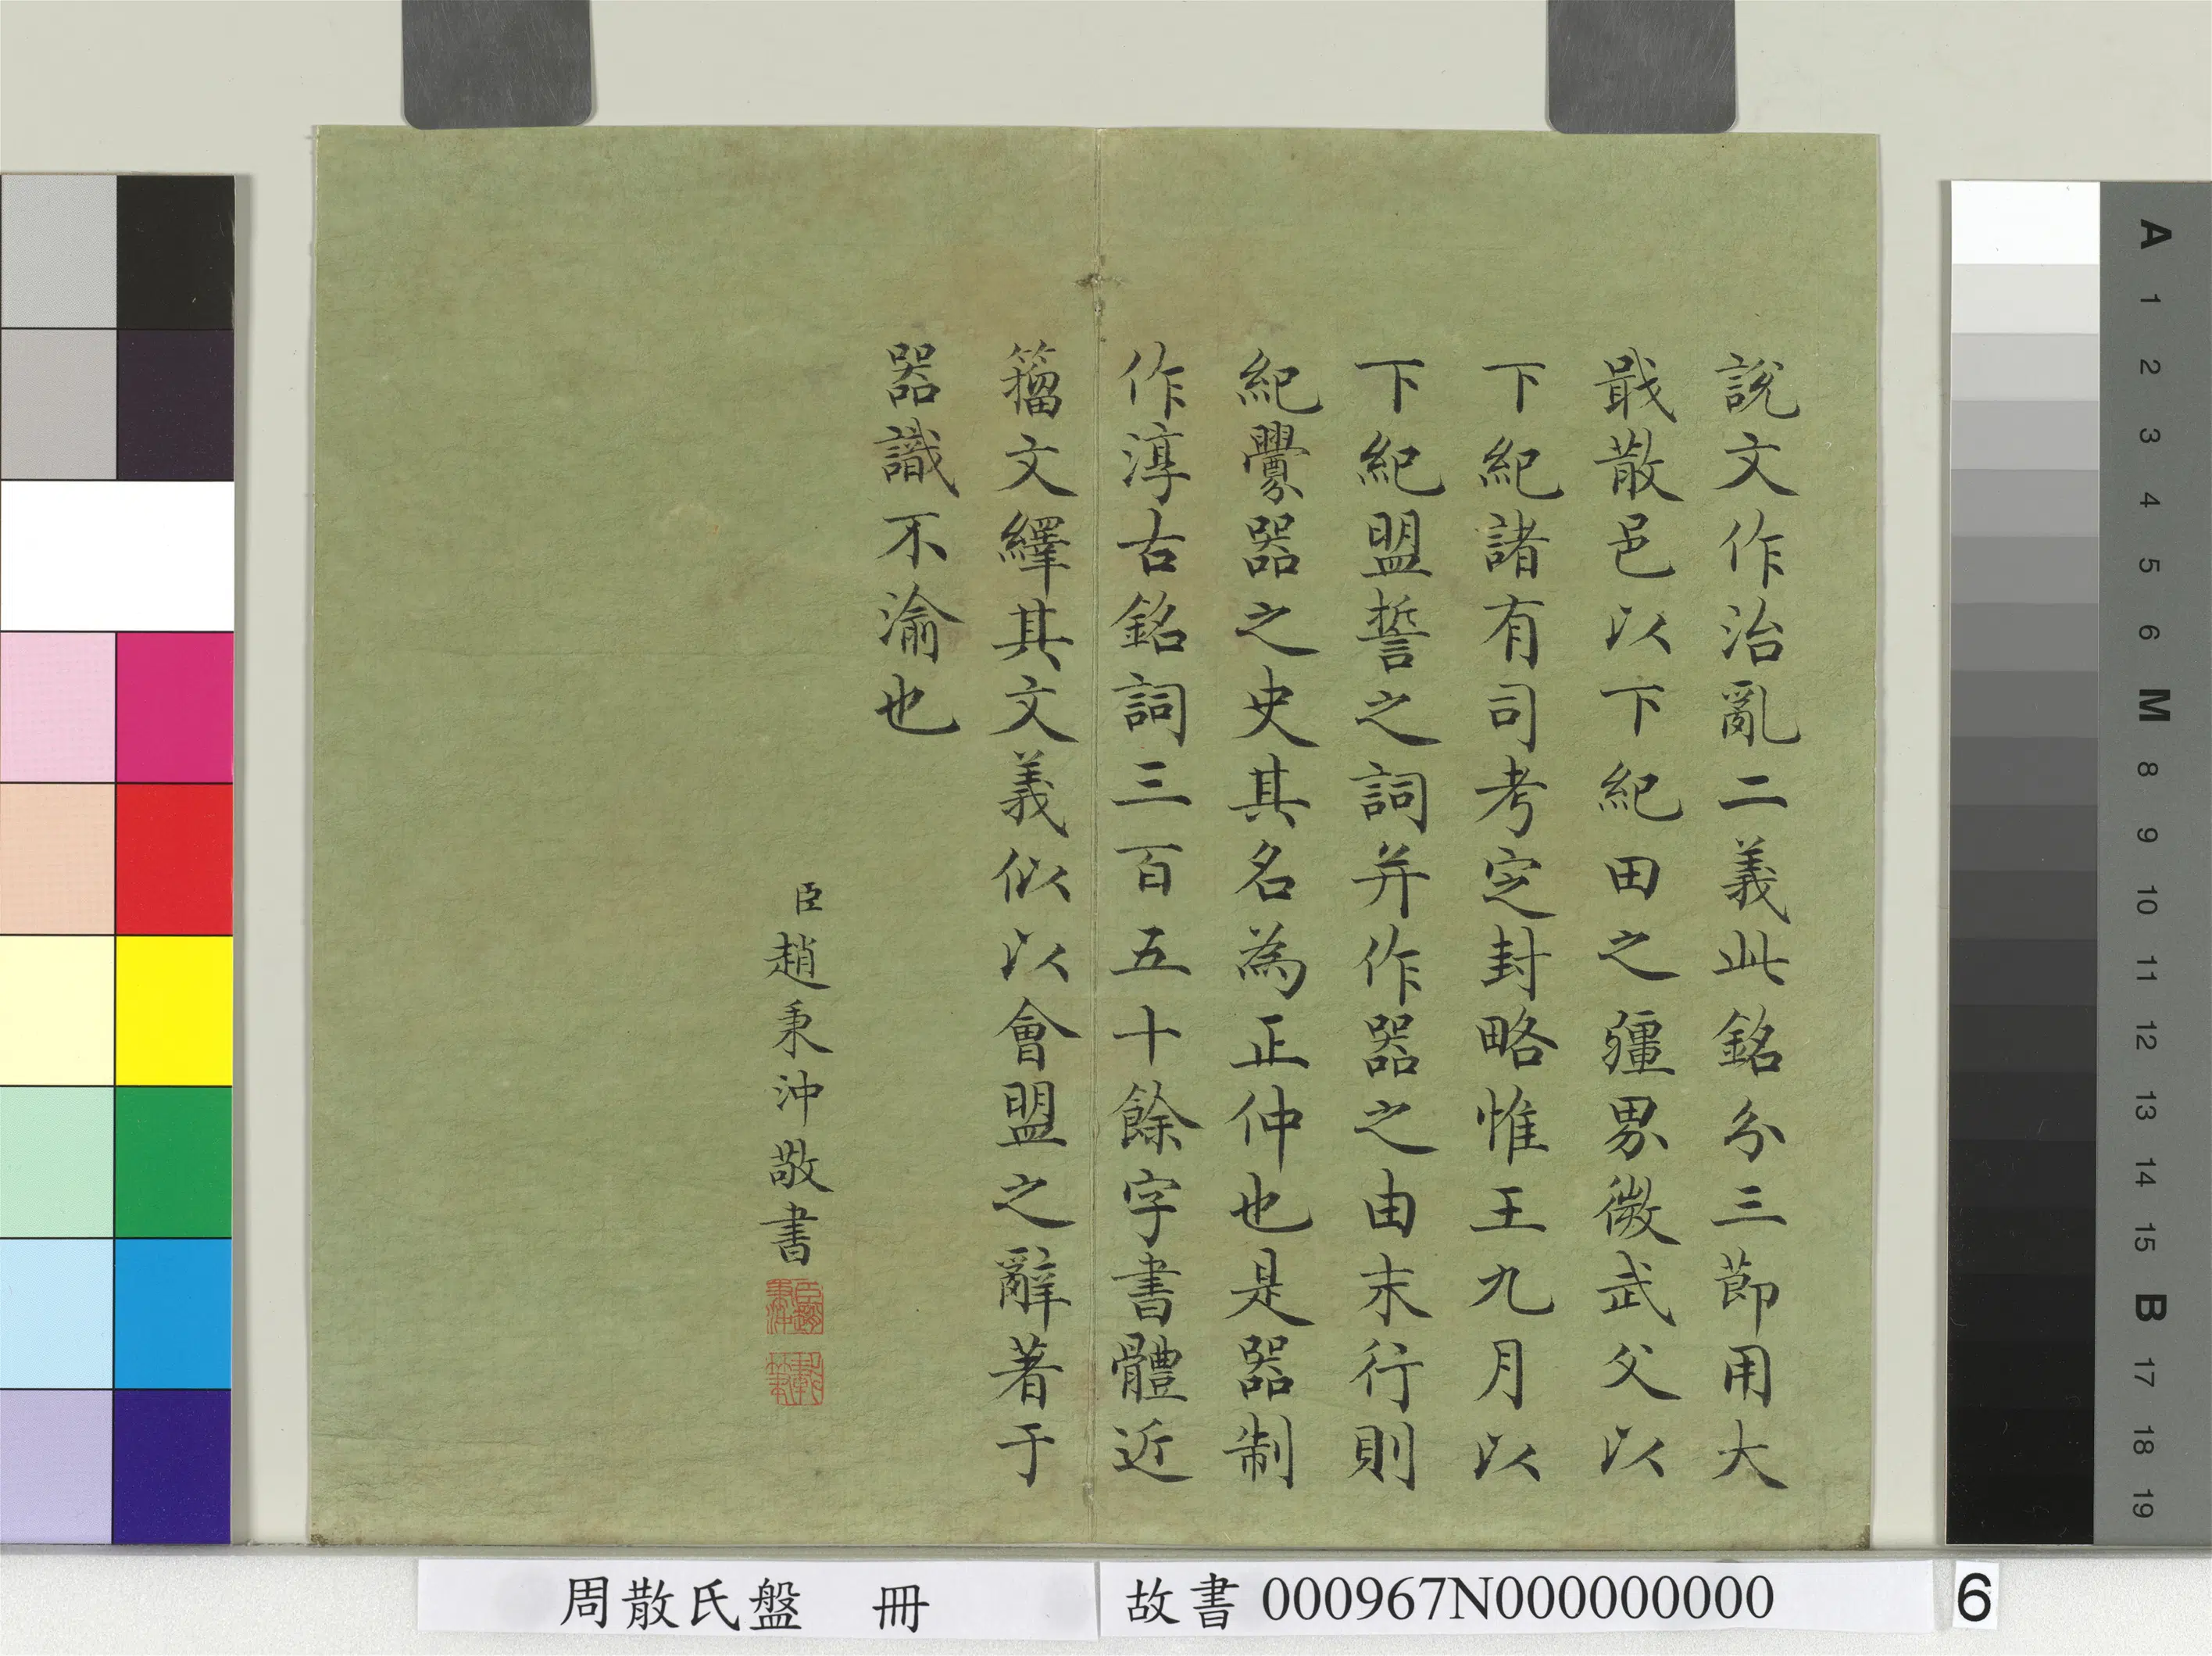 說文作治亂二義此銘分三節用大
戢散邑以下紀田之疆界微武父以
下紀諸有司考定封略惟王九月以
下紀盟誓之詞并作器之由末行則
紀釁器之史其名為正仲也是器制
作淳古銘詞三百五十餘字書體近
籀文繹其文義似以會盟之辭著于
器識不渝也
臣趙秉沖敬書
周散氏盤 冊
故書 000967N000000000
6
A 1 2 3 4 5 6 M 8 9 10 11 12 13 14 15 B 17 18 19